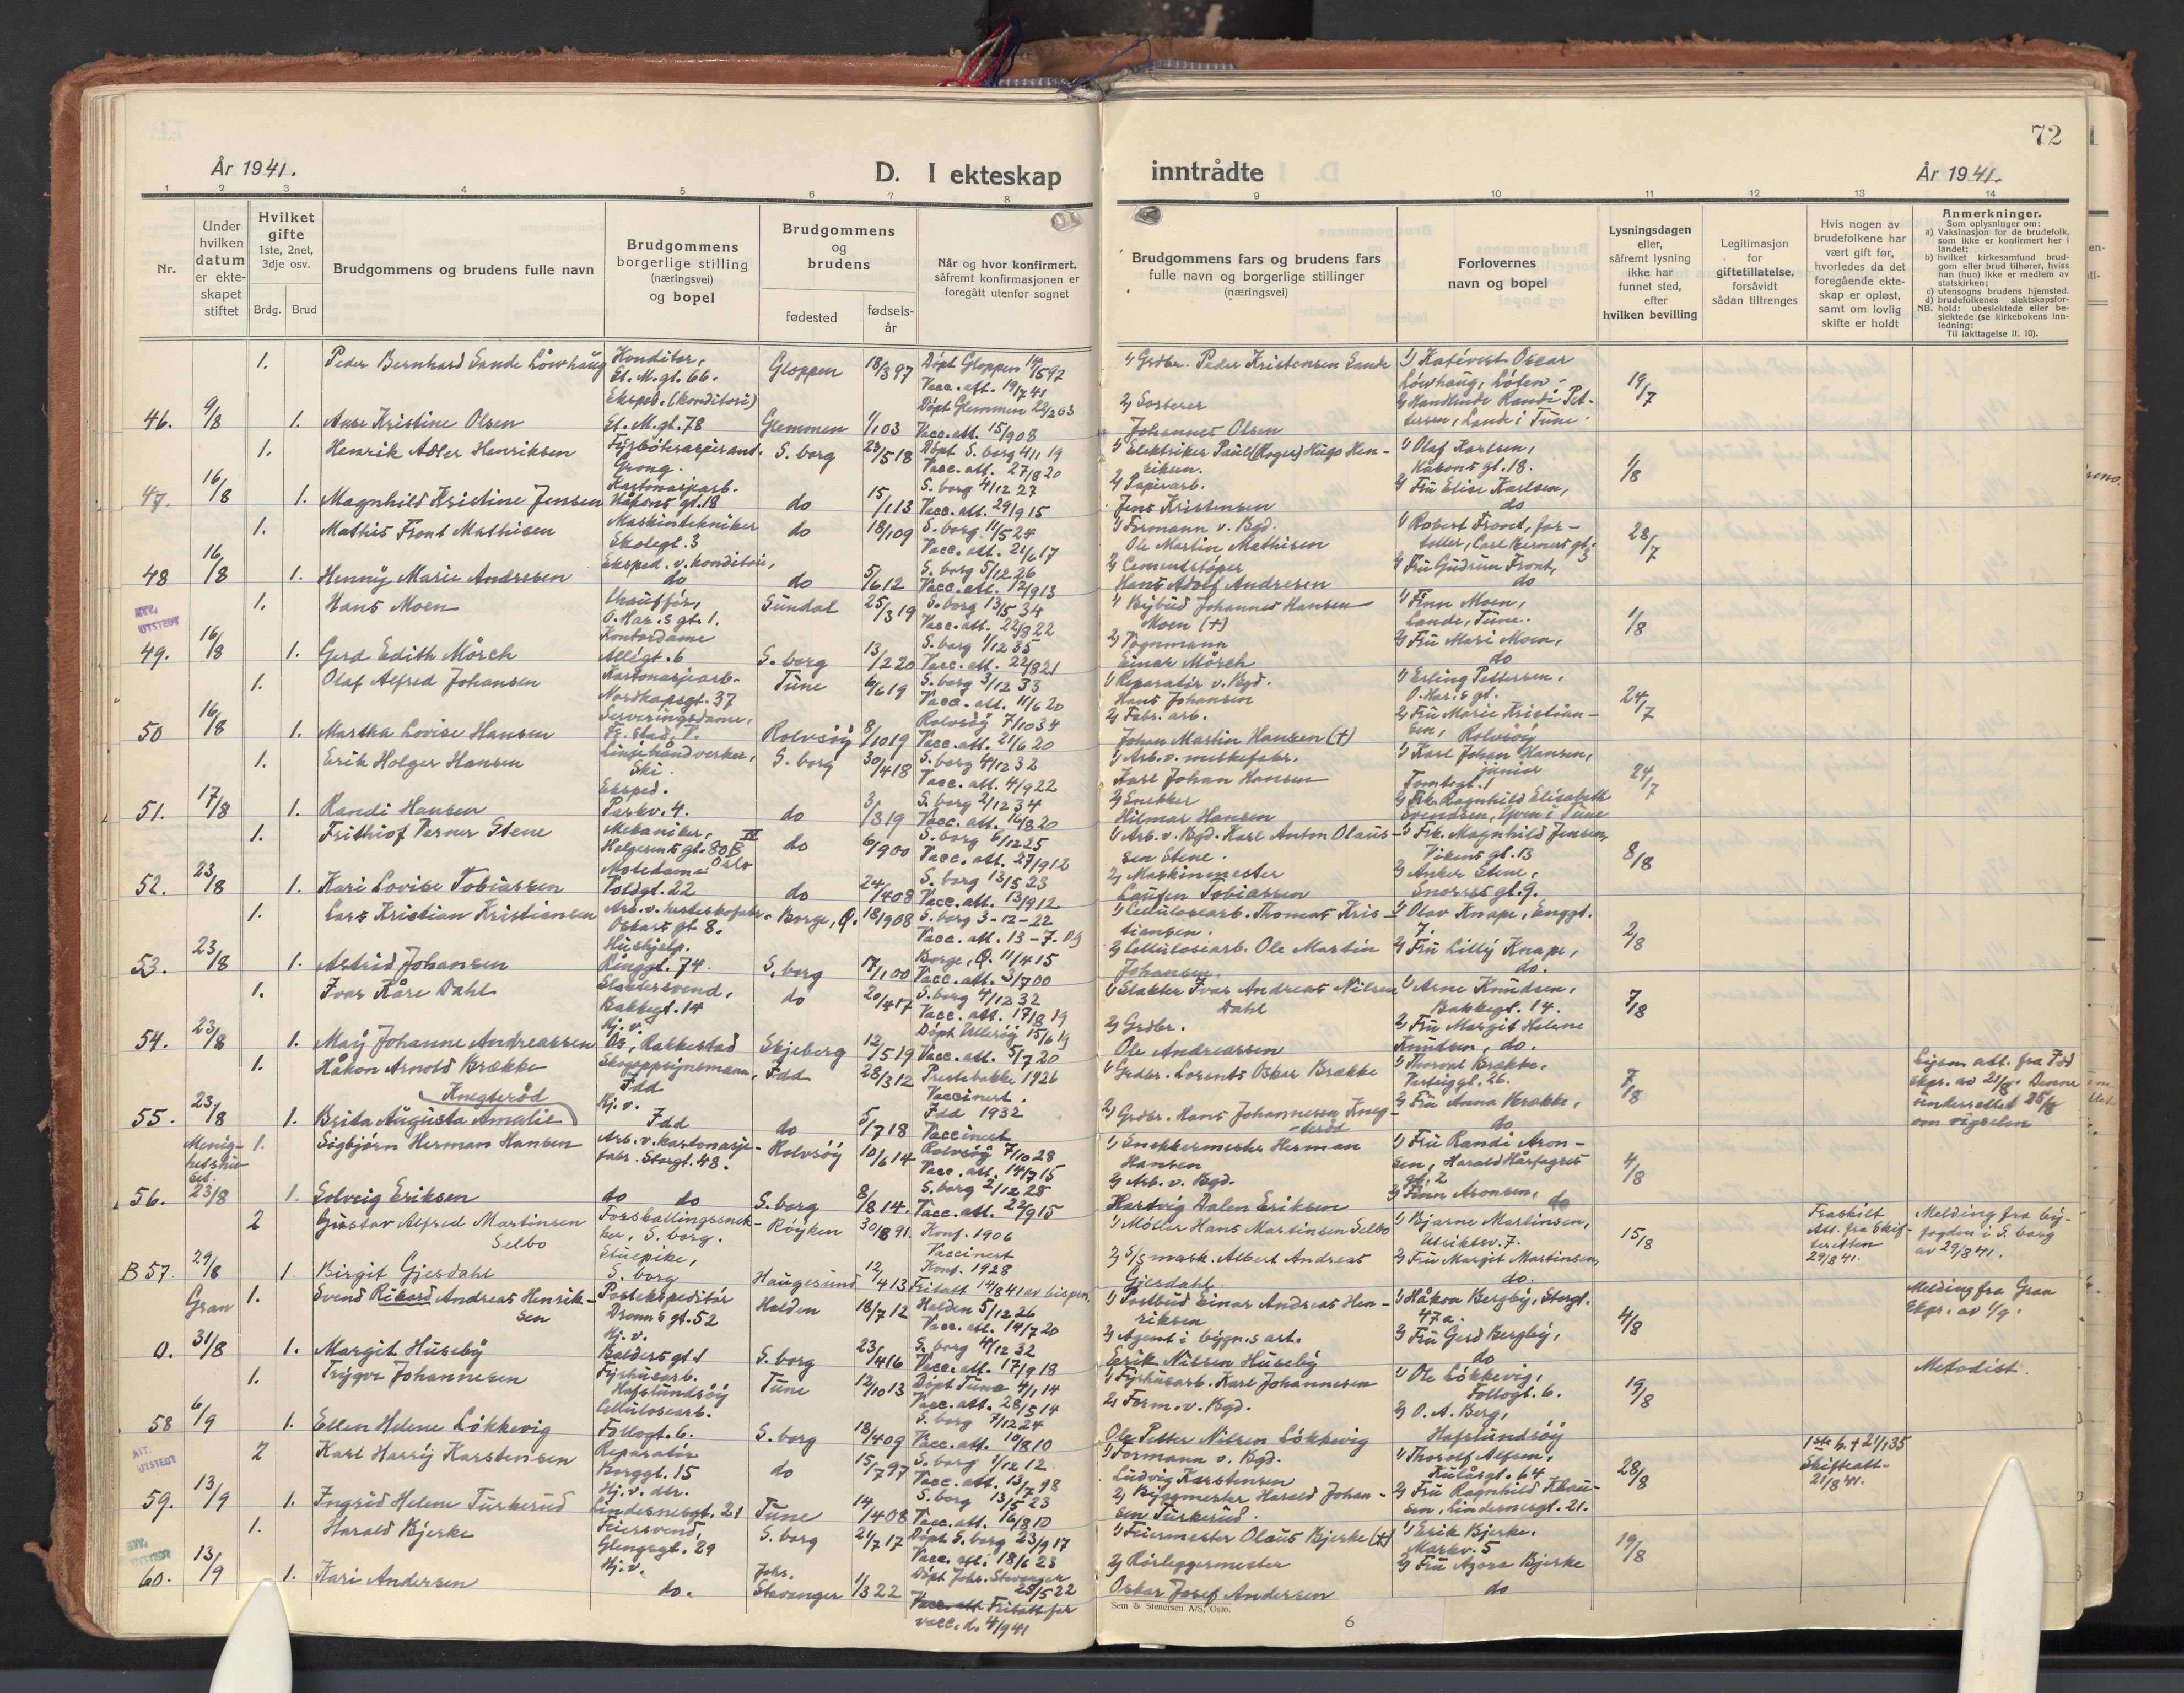 72
År 1941.
D. I ekteskap
inntrådte
År 1941.
1 2 3 4 5 6 7 8 9 10 11 12 13 14
Nr.
Under hvilken datum er ekteskapet stiftet
Hvilket gifte
1ste, 2net, 3dje osv.
Brdg. Brud
Brudgommens og brudens fulle navn
Brudgommens borgerlige stilling (næringsvei) og bopel
Brudgommens og brudens
fødested
fødselsår
Når og hvor konfirmert, såfremt konfirmasjonen er foregått utenfor sognet
Brudgommens fars og brudens fars fulle navn og borgerlige stillinger (næringsvei)
Forlovernes navn og bopel
Lysningsdagen eller, såfremt lysning ikke har funnet sted, efter hvilken bevilling
Legitimasjon for giftetillatelse, forsåvidt sådan tiltrenges
Hvis nogen av brudefolkene har vært gift før, hvorledes da det foregående ekteskap er opløst, samt om lovlig skifte er holdt
Anmerkninger.
Som oplysninger om:
a) Vaksinasjon for de brudefolk, som ikke er konfirmert her i landet;
b) hvilket kirkesamfund brudgom eller brud tilhører, hviss han (hun) ikke er medlem av statskirken;
c) utensogns brudens hjemsted.
d) brudefolkenes slektskapsforhold: ubeslektede eller beslektede (se kirkebokens innledning:
NB. Til iakttagelse II. 10).
1. Peder Bernhard Sande Löwhaug Konditor, St. M.gt. 66. Gloppen 18/3 97 Döpt Gloppen 14/5 97 Vacc. att. 19/7 41 1) Grdbr. Peder Kristensen Sande 1) Kafévert Oscar Löwhaug, Löten 19/7
46. 9/8 1. Anne Kristine Olsen Eksped. (konditori) St. M.gt. 78 Glemmen 1/1 03 Döpt Glemmen 22/2 03 Vacc. att. 15/9 08 2) Sorterer Johannes Olsen 2) Handlende Randi Pettersen, Lande i Tune.
1. Henrik Adler Henriksen Fyrböteraspirant. Grong. S. borg 23/5 18 Döpt S. borg 4/1 19 Vacc. att. 27/8 20 1) Elektriker Paul (Roger) Hugo Henriksen. 1) Olaf Karlsen, Håkons gt. 18. 1/8
47. 16/8 1. Magnhild Kristine Jensen Kartonasjearb. Håkons gt. 18 do 15/1 13 S. borg 4/12 27 Vacc. att. 29/9 15 2) Papirarb. Jens Kristensen 2) Fru Elise Karlsen, do
1. Mathis Front Mathisen Maskintekniker Skolegt. 3 do 18/1 09 S. borg 11/5 24 Vacc. att. 21/6 17 1) Formann v. Bgd. Ole Martin Mathisen 1) Robert Front, fortoller, Carl Berners gt. 3 28/7
48 16/8 1. Henny Marie Andresen Eksped. v. konditori, do do 5/6 12 S. borg 5/12 26 Vacc. att. 12/9 13 2) Cementstöper Hans Adolf Andresen 2) Fru Gudrun Front, do
ATT. UTSTEDT
1. Hans Moen Chaufför, O. Har.s gt. 1. Sundal 25/3 19 S. borg 13/5 34 Vacc. att. 22/9 22 1) Bybud Johannes Hansen Moen (+) 1) Finn Moen, Lande, Tune. 1/8
49. 16/8 1. Gerd Edith Mörch Kontordame Allégt. 6 S. borg 13/2 20 S. borg 1/12 35 Vacc. att. 22/8 21 2) Vognmann Einar Mörch 2) Fru Mari Moen, do
1. Olaf Alfred Johansen Kartonasjearb. Nordkapsgt. 37 Tune 6/6 19 S. borg 3/12 33 Vacc. att. 11/6 20 1) Reparatör v. Bgd. Hans Johansen 1) Erling Pettersen, O. Har.s gt. 24/7
50 16/8 1. Martha Lovise Hansen Serveringsdame, Fr. stad, V. Rolvsöy 8/10 19 Rolvsöy 7/10 34 Vacc. att. 21/6 20 2) Fabr. arb. Johan Martin Hansen (+) 2) Fru Marie Kristiansen, Rolvsöy
1. Erik Holger Hansen Linjehåndverker, Ski. S. borg 30/4 18 S. borg 4/12 32 Vacc. att. 4/9 22 1) Arb. v. melkefabr. Karl Johan Hansen 1) Karl Johan Hansen, junior Tomtegt. 1 24/7
51. 17/8 1. Randi Hansen Eksped. Parkv. 4. do 3/3 19 S. borg 2/12 34 Vacc. att. 16/8 20 2) Snekker Hilmar Hansen 2) Frk. Ragnhild Elisabeth Svendsen, Yven i Tune
1. Frithiof Verner Stene Mekaniker, Helgesens gt. 80 B IV Oslo do 6/9 00 S. borg 6/12 25 Vacc. att. 27/9 12 1) Arb. v. Bgd. Karl Anton Olaussen Stene. 1) Frk. Magnhild Jensen, Vikens gt. 13 8/8
52. 23/8 1. Kari Lovise Tobiassen Motedame Voldgt. 22 do 24/4 08 S. borg 13/5 23 Vacc. att. 13/9 12 2) Maskinmester Laugen Tobiassen 2) Anker Stene, Snorres gt. 9.
1. Lars Kristian Kristiansen Arb. v. hesteskofabr. Oskars gt. 8. Borge, Ø. 18/9 08 S. borg 3-12-22 Vacc. att. 13-7. 09 1) Cellulosearb. Thomas Kristiansen. 1) Olav Knape, Enggt. 7. 2/8
53. 23/8 1. Astrid Johansen Hushjelp. Ringgt. 74. S. borg 17/1 00 Borge, Ø. 11/4 15 Vacc. att. 3/7 00 2) Cellulosearb. Ole Martin Johansen. 2) Fru Lilly Knape, do.
1. Ivar Kåre Dahl Slaktersvend, Bakkegt. 14 do 20/4 17 S. borg 4/12 32 Vacc. att. 17/8 19 1) Slakter Ivar Andreas Nilsen Dahl 1) Arne Knudsen, Bakkegt. 14. 7/8
54. 23/8 1. Maÿ Johanne Andreassen Hj. v. Os, Rakkestad Skjeberg 12/5 19 Döpt Ullerøy 15/6 19 Vacc. att. 5/7 20 2) Grdbr. Ole Andreassen 2) Fru Margit Helene Knudsen, do.
1. Håkon Arnold Brække Skogoppsynsmann, Idd Idd 28/3 12 Prestebakke 1926 Vaccinert. 1) Grdbr. Lorents Oskar Brække 1) Thorvald Brække, 26. 7/8 att. fra Idd skpr. av 21/8. Denne underrettet 25/8 om vigselen
55. 23/8 1. Brita Augusta Amalie Knegteröd Hj. v. Idd do 5/7 18 Idd 1932 Vaccinert 2) Grdbr. Hans Johannesen Knegteröd 2) Fru Anna Brække, do
Menighetshuset. 1. Sigbjörn Herman Hansen Arb. v. kartonasjefabr. Storgt. 48. Rolvsöy 10/6 14 Rolvsöy 7/10 28 Vacc. att. 14/7 15 1) Snekkermester Herman Hansen 1) Fru Randi Aronsen, Harald Hårfagres gt. 2 4/8
56. 23/8 1. Solveig Eriksen do do S. borg 8/8 14. S. borg 2/12 28 Vacc. att. 22/9 15 2) Arb. v. Bgd. Hartvig Dalen Eriksen 2) Finn Aronsen, do
2 Gustav Alfred Martinsen Selbo Forskallingssnekker, S. borg. Röyken 30/8 91. Konf. 1906 Vaccinert 1) Möller Hans Martinsen Selbo 1) Bjarne Martinsen, Utsiktsv. 7. 15/8 Fraskilt Att. fra Skifteretten 29/8 41. Melding fra byfogden i S. borg av 29/8 41.
B 57. 29/8 1. Birgit Gjesdahl Stuepike, S. borg Haugesund 12/4 13 Konf. 1928 Fritatt 14/8 41 av bispen. 2) S/S mask. Albert Andreas Gjesdahl. 2) Fru Margit Martinsen, do.
Gran 1. Svend Rikard Andreas Henriksen Postekspeditör Dronn.s gt. 52 Halden 18/7 12 Halden 5/12 26 Vacc. att. 14/7 20 1) Postbud Einar Andreas Henriksen 1) Håkon Bergby, Storgt. 47a. 4/8 Melding fra Gran skpr. av 1/9.
0. 31/8 1. Margit Huseby Hj. v. Balders gt. 1 S. borg 23/4 16 S. borg 4/12 32 Vacc. att. 17/9 18 2) Agent i bygn.s art. Erik Nilsen Huseby 2) Fru Gerd Bergby, do
1. Trygve Johannesen Fyrhusarb. Hafslundsöy Tune 12/10 13 Döpt Tune 4/1 14 Vacc. att. 28/5 14 1) Fyrhusarb. Karl Johannesen 1) Ole Lökkevig, Follogt. 6. 19/8 Metodist.
58 6/9 1. Ellen Helene Lökkevig Cellulosearb. Follogt. 6. S. borg 18/4 09 S. borg 7/12 24 Vacc. att. 10/8 10 2) Form. v. Bgd. Ole Petter Nilsen Lökkevig 2) O. A. Berg, Hafslundsöy
ATT. UTSTEDT
2 Karl Harry Karstensen Reparatör Borggt. 15 do 15/7 97 S. borg 1/12 12. Vacc. att. 13/7 98 1) Formann v. Bgd. Ludvig Karstensen 1) Thorolf Alfsen, Kulåsgt. 64 28/8 1ste h. + 21/1 35 Skifteatt. 21/8 41.
59. 13/9 1. Ingrid Helene Turkerud Hj. v. dtr. Lindesnesgt. 21 Tune 14/4 08 S. borg 13/5 23 Vacc. att. 16/8 10 2) Byggmester Harald Johansen Turkerud. 2) Fru Ragnhild Lindesnesgt. 21.
ATT. UTSTEDT
1. Harald Bjerke Feiersvend, Glengsgt. 29 S. borg 21/7 17 Döpt S. borg 23/9 17 Vacc. att. 18/6 23 1) Feiermester Olaus Bjerke (+) 1) Erik Bjerke. Markv. 5 19/8
60. 13/9 1. Kari Andersen Hj. v. do. Johs. Stavanger 1/3 22 Döpt Johs. Stavanger 25/5 22 Vacc. att. Fritatt for vacc. d. 4/9 41 2) Rörleggermester Oskar Josef Andersen 2) Fru Azora Bjerke do
Sem & Stenersen A/S, Oslo.
6